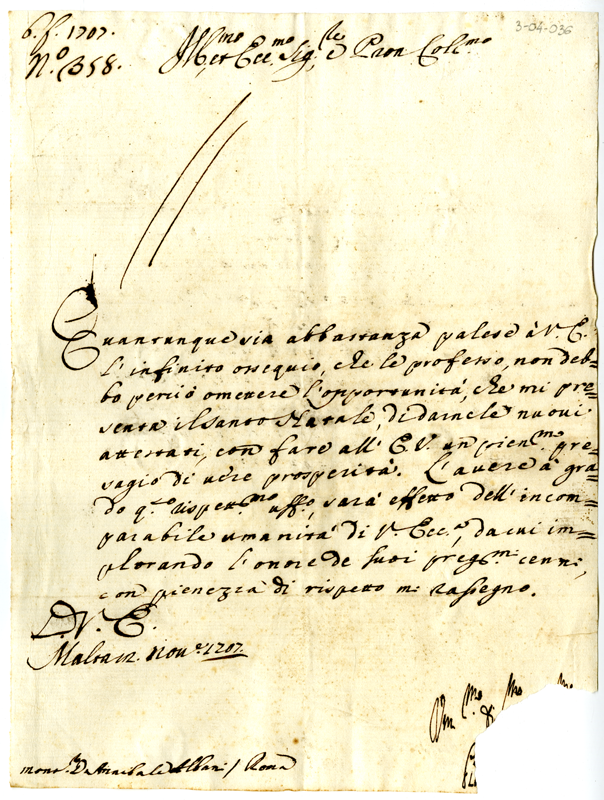 6. f. 1707.
N.º 358.
3-04-036
Ill.mo et Ecc.mo Sig.re e Pron Col.mo
Quantunque sia abbastanza palese à V. E.
l'infinito ossequio, che le professo, non deb=
bo perciò omettere l'opportunità, che mi pre=
senta il Santo Natale, di darnele nuovi
attestati, con fare all' E. V. un pien.mo pre=
sagio di vere prosperità. L'avere à gra=
do q.to rispett.mo uff.o, sarà effetto dell' incom=
parabile umanità di V. Ecc.a, da cui im=
plorando l'onore de suoi preg.mi cenni,
con pienezza di rispetto mi rassegno.
D. V. E.
Malta 12. Nov.e 1707.
mons.r D. Annibale Albani / Roma